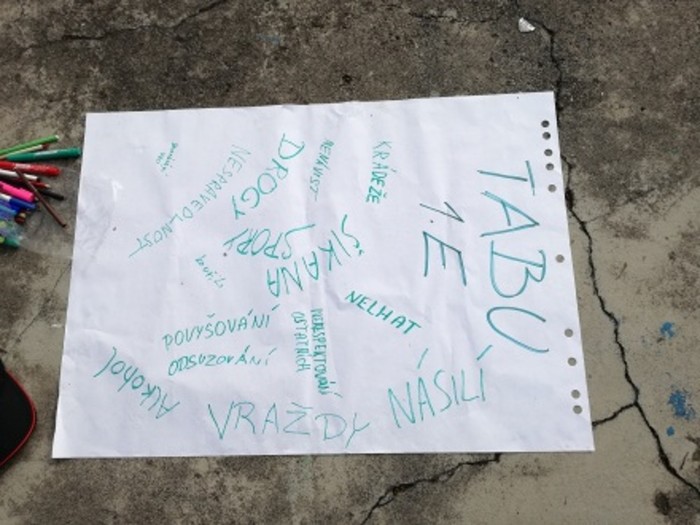 TABU
1.E
KRÁDEŽE
NENÁVIST
DROGY
NESPRAVEDLNOST
SPORY
ŠIKANA
NELHAT
POVYŠOVÁNÍ
ODSUZOVÁNÍ
NERESPEKTOVÁNÍ
OSTATNÍCH
Alkohol
VRAŽDY
NÁSILÍ